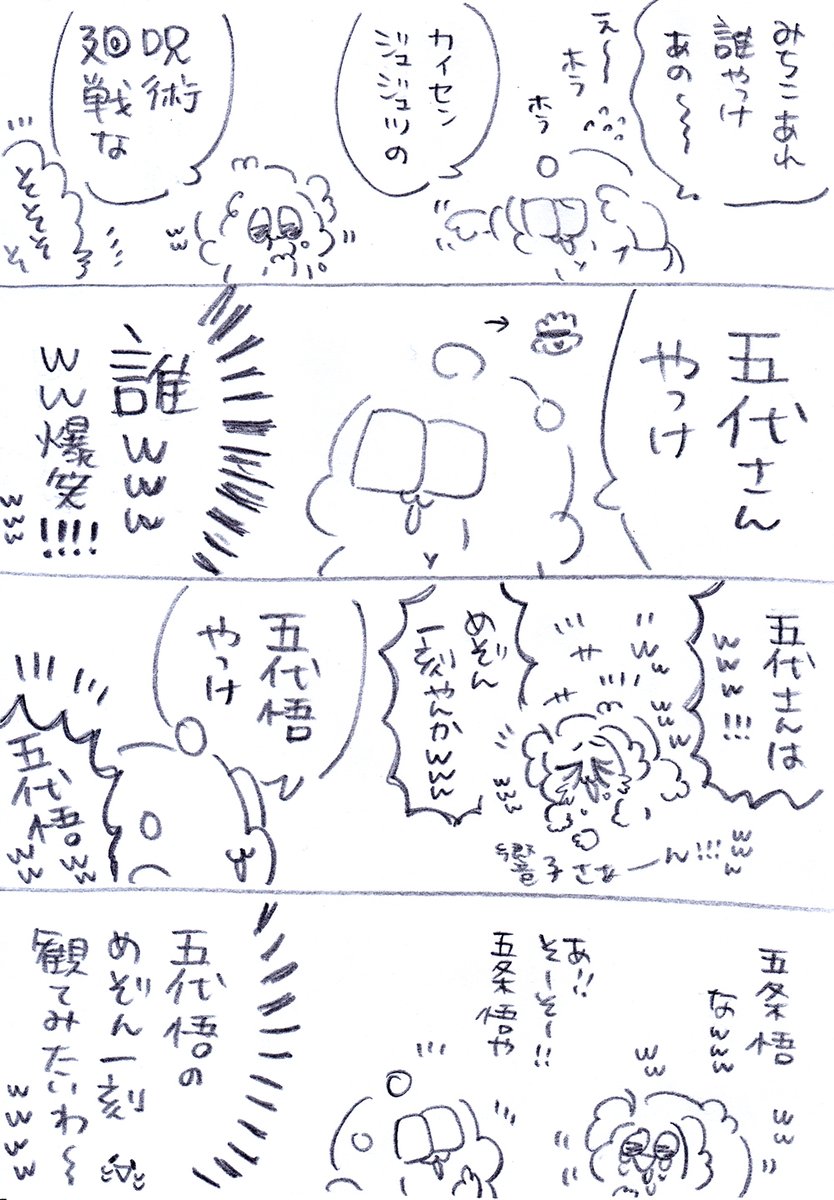 みちこあれ
誰やっけ
あの〜〜〜
え〜〜
ホラ
ホラ
カイセン
ジュジュツの
呪術
廻戦な
そそそそ
そ
五代さん
やっけ
誰www
ww爆笑!!!!
www
五代さんは
www!!!
ww
www
めぞん
一刻やんかwww
www
響子さぁーん!!!
www
五代悟
やっけ
五代悟。ww
ww
五条悟
なwww
ww
ww
あ!!
そーそー!!
五条悟や
五代悟の
めぞん一刻
観てみたいわ〜
wwww